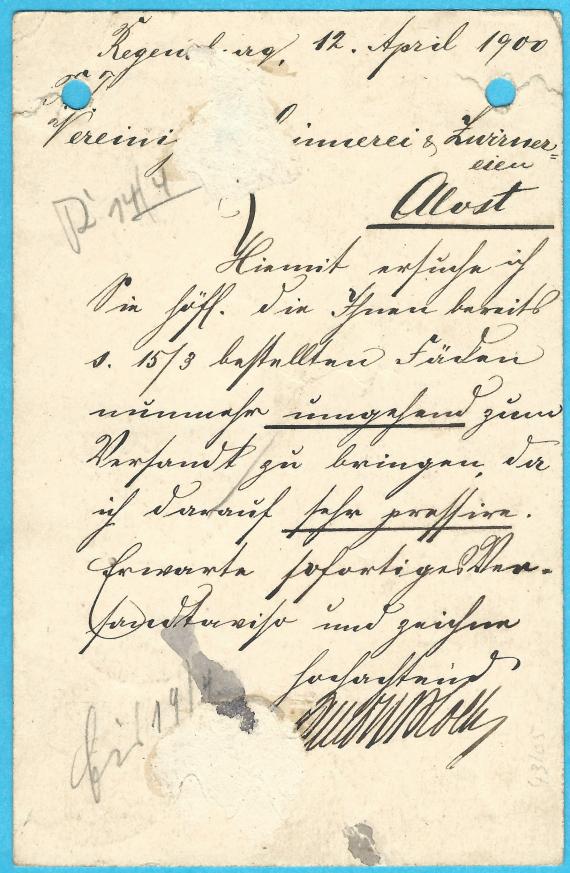 Regensburg, 12. April 1900
Vereini innerei & Zwirner=
eien
Alost
Hiemit ersuche ich
Sie höfl. die Ihnen bereits
s. 15/3 bestellten Fäden
nunmehr umgehend zum
Versandt zu bringen, da
ich darauf sehr pressire.
Erwarte sofortiges Ver-
sandtaviso und zeichne
hochachtend
14/4
19/4